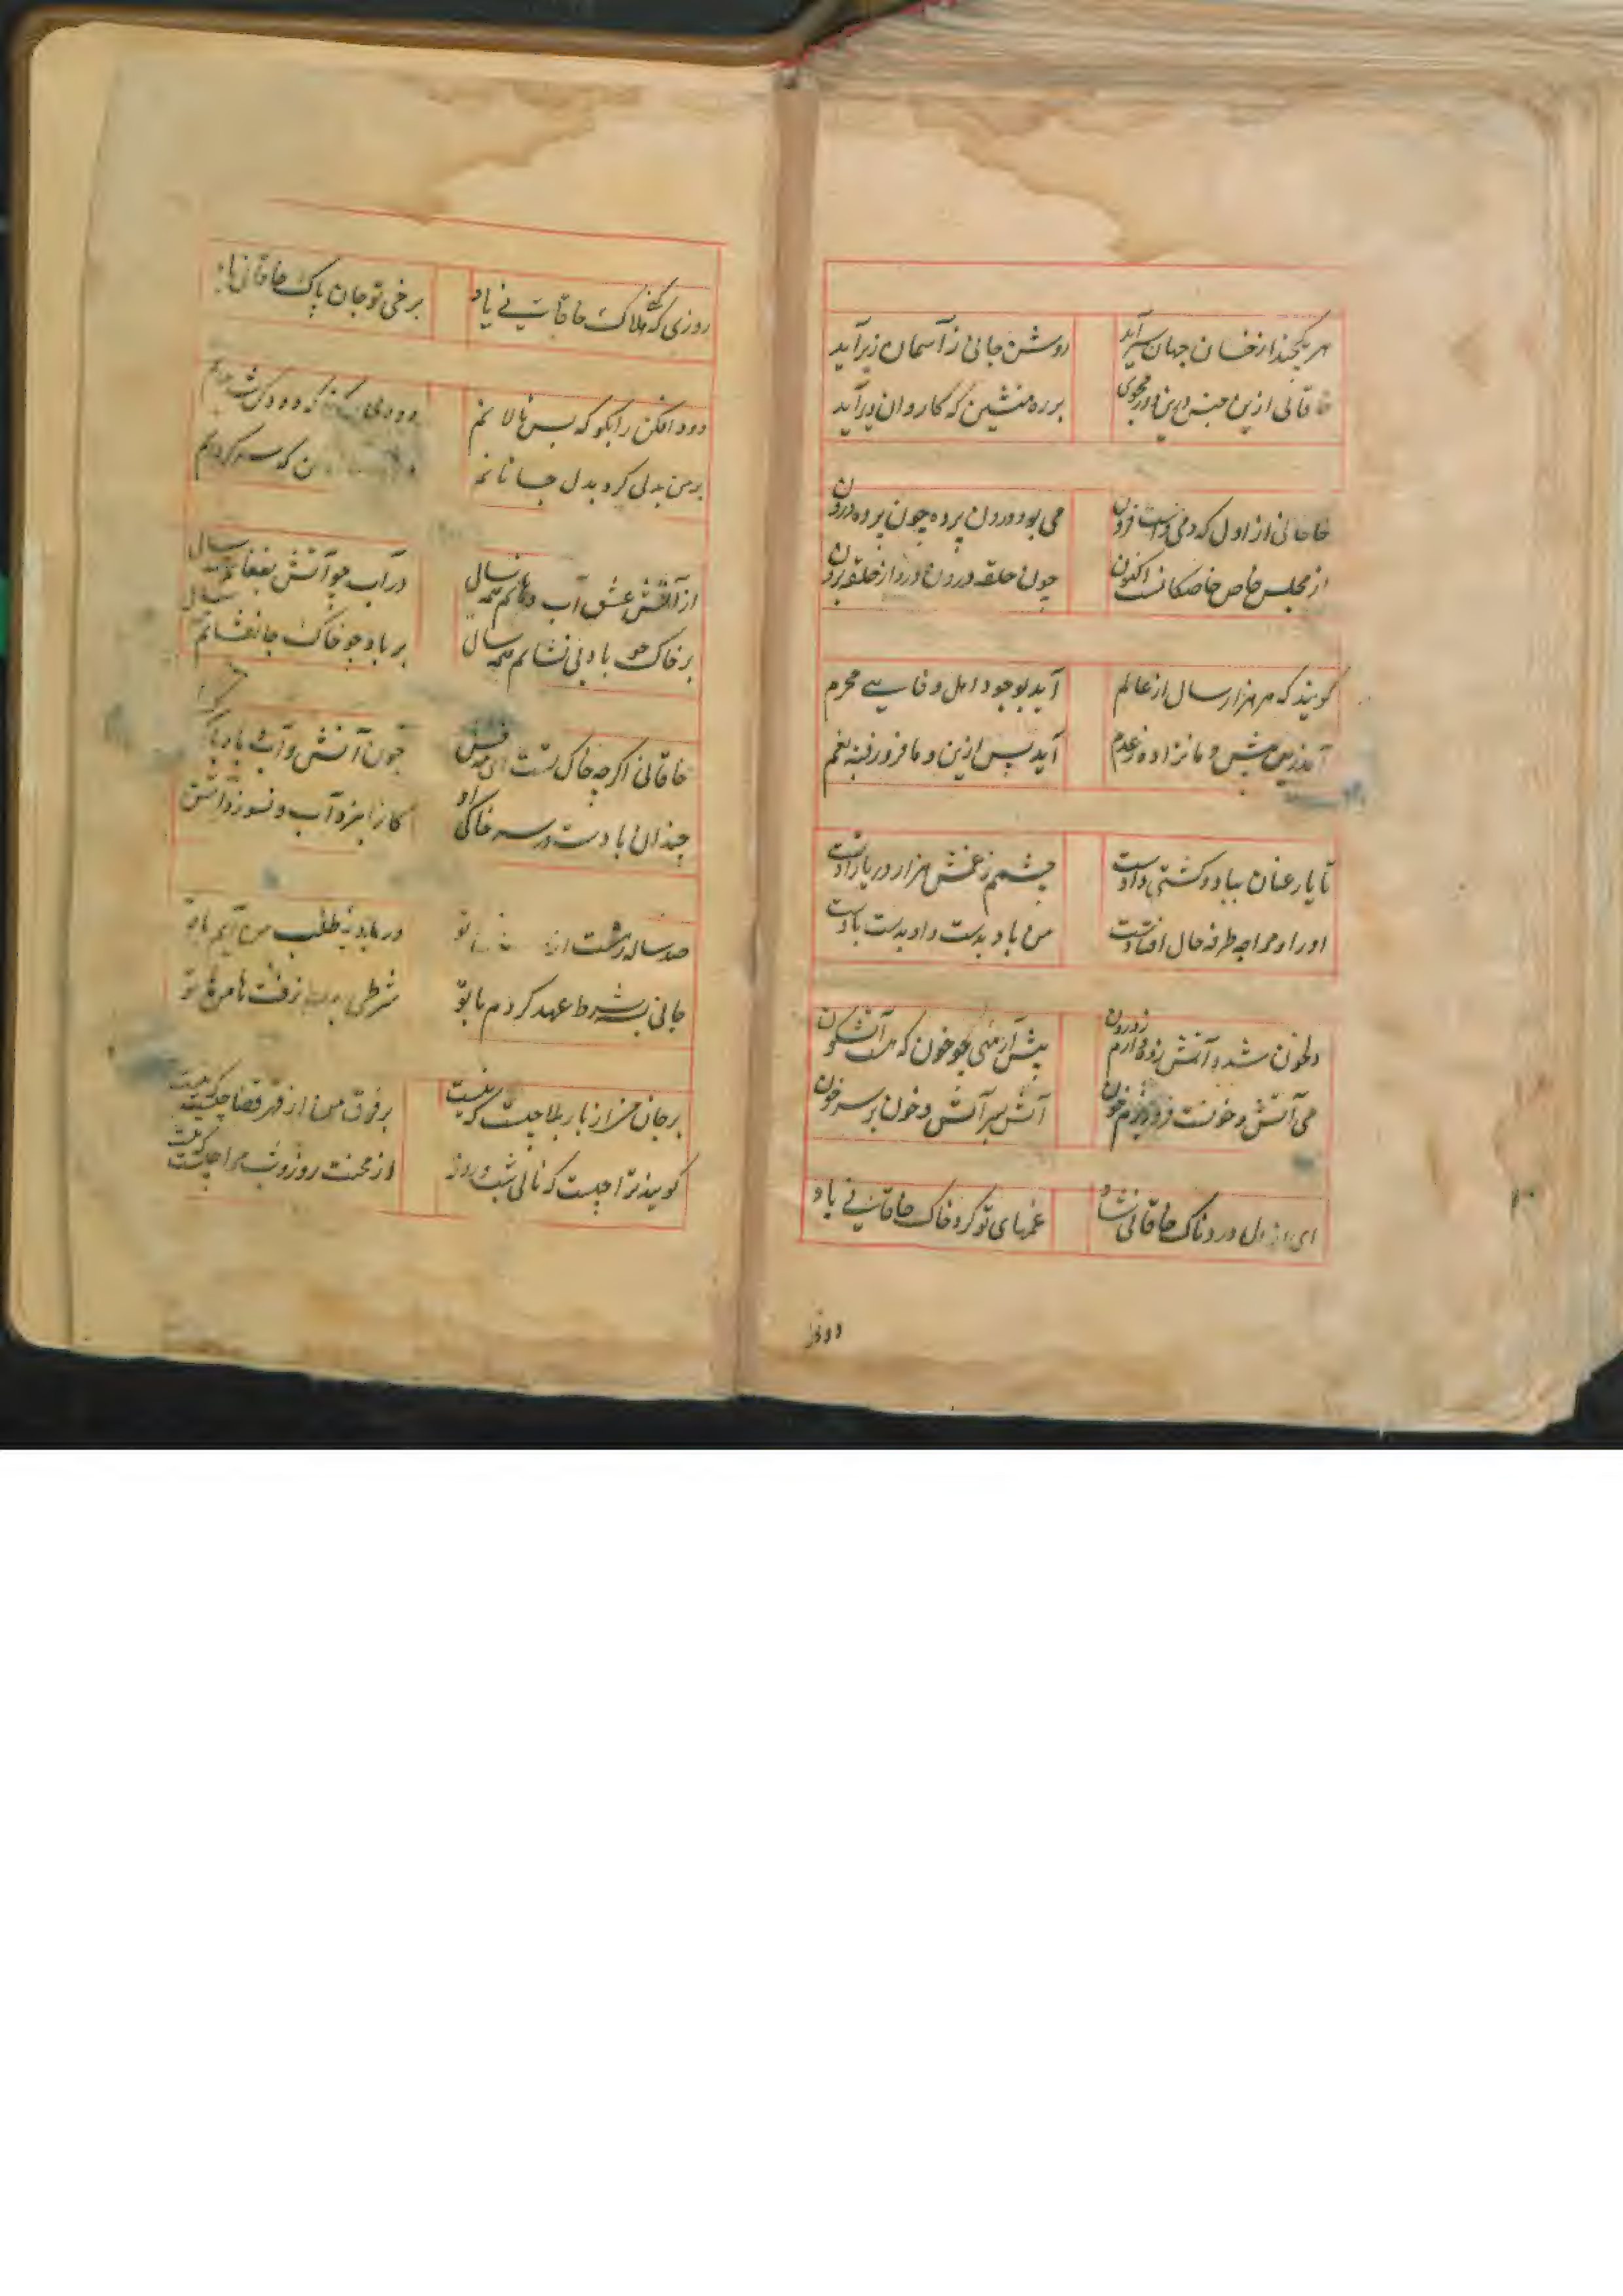 هر یکچند از خسان جهان سیر آید
روشن جانی ز آسمان زیر آید
خاقانی ازین جنس درین دور مجوی
بر ره منشین که کاروان دیر آید
خاقانی از اول که دمی داشت فزون
می بود درون پرده چون پرده درون
از مجلس خاص خاصگانست اکنون
چون حلقه درون در و از حلقه برون
گویند که هر هزار سال از عالم
آید بوجود اهل وفایی محرم
آمد زین پیش و ما نزاده ز عدم
آید پس ازین و ما فرو رفته بغم
تا یار عنان بباد و کشتی دادست
چشمم ز غمش هزار دریا زادست
او را و مرا چه طرفه حال افتادست
من باد بدست و او بدست بادست
دل خون شد و آتش زده دارم ز درون
پیش آر می چو خون که هست آتش گون
می آتش و خونست فرو ریزم خون
آتش بر آتش و خون بر سر خون
ای از دل دردناک خاقانی شاد
غمهای تو کرد خاک خاقانی باد
روزی که کنی هلاک خاقانی یاد
برخی تو جان پاک خاقانی باد
دود افکن را بگو که بس نالانم
بر من بدلی کرد بدل جانانم
از آتش عشق آب دهانم همه سال
در آب چو آتش بفغانم همه سال
بر خاک چو باد بی نشانم همه سال
بر باد چو خاک جانفشانم همه سال
خاقانی اگرچه خاک تست ای مه
چون آتش و آب و باد
چندان بادست در سر خاکی او
کاو را نبرد آب و نسوزد آتش
صد ساله رهست از
در بادیه طلب من آیم یا تو
جانی بشرط عهد کردم با تو
شرطی نرفت با من ها تو
بر جان من از بار بلا چیست که نیست
بر فرق من از قهر قضا چیست که نیست
گویند ترا چیست که نالی شب و روز
از محنت روز و شب مرا چیست که نیست